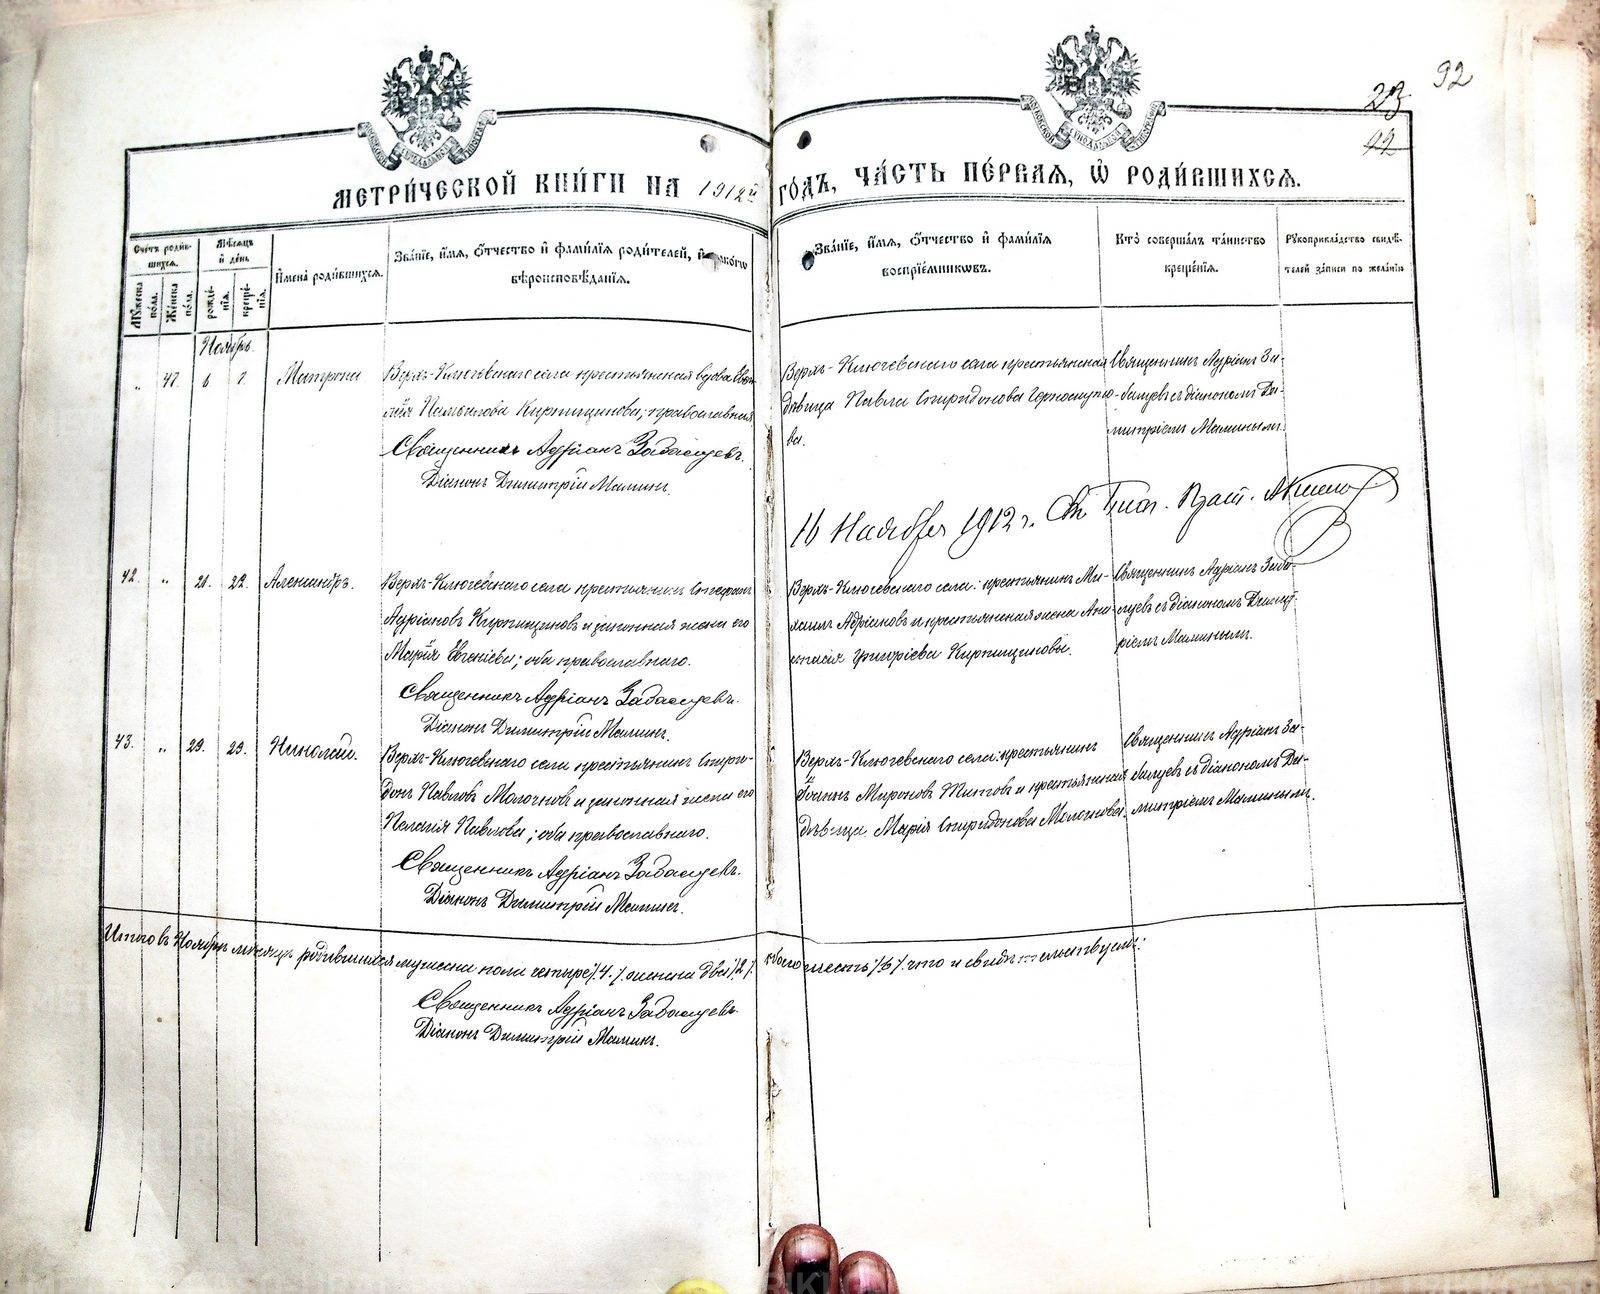 92
23
92
МЕТРИ́ЧЕСКОЙ КНИ́ГИ НА 1912й ГО́ДЪ, ЧА́СТЬ ПЕ́РВАЯ, Ѡ҆ РОДИ́ВШИХСЯ.
Сче́тъ роди́вшихся.
Мꙋ́жеска по́ла.
Же́нска по́ла.
Мѣ́сяцъ и҆ де́нь
рожде́нїя.
креще́нїя.
И҆мена̀ роди́вшихся.
Зва́нїе, и҆́мя, ѻ҆́тчество и҆ фами́лїя роди́телей, и҆ како́гѡ
вѣроисповѣ́данїя.
Зва́нїе, и҆́мя, ѻ҆́тчество и҆ фами́лїя
воспрїе́мникѡвъ.
Кто̀ соверша́лъ та́инство
креще́нїя.
Рꙋкоприкла́дство свидѣ́-
телей за́писи по жела́нїю
Ноябрь.
„ 47. 6 7. Матрона
Верхъ-Ключевскаго села крестьянская вдова
Кирпищикова; православная
Священникъ Адріанъ Забалуевъ.
Діаконъ Димитрій Маминъ.
Верхъ-Ключевскаго села крестьянская
дѣвица Павла Спиридонова Горносупо-
ва.
Священникъ Адріанъ За-
балуевъ съ діакономъ Ди-
митріемъ Маминымъ.
16 Ноября 1912 г.
42. „ 21. 22. Александръ.
Верхъ-Ключевскаго села крестьянинъ Стефанъ
Адріановъ Кирпищиковъ и законная жена его
Марія Евгеніева; оба православнаго.
Священникъ Адріанъ Забалуевъ.
Діаконъ Димитрій Маминъ.
Верхъ-Ключевскаго села: крестьянинъ Ми-
хаилъ Адріановъ и крестьянская жена Ана-
стасія Григоріева Кирпищиковы.
Священникъ Адріанъ Заба-
луевъ съ діакономъ Димит-
ріемъ Маминымъ.
43. „ 29. 29. Николай.
Верхъ-Ключевскаго села крестьянинъ Спири-
донъ Павловъ Молочковъ и законная жена его
Пелагія Павлова; оба православнаго.
Священникъ Адріанъ Забалуевъ.
Діаконъ Димитрій Маминъ.
Верхъ-Ключевскаго села: крестьянинъ
Іоаннъ Мироновъ Титовъ и крестьянская
дѣвица Марія Спиридонова Молочкова.
Священникъ Адріанъ За-
балуевъ съ діакономъ Ди-
митріемъ Маминымъ.
Итого въ Ноябрѣ мѣсяцѣ родившихся мужеска пола четыре /4./ женска два /2/. обоего шесть /6/ что и свидѣтельствуемъ:
Священникъ Адріанъ Забалуевъ
Діаконъ Димитрій Маминъ.